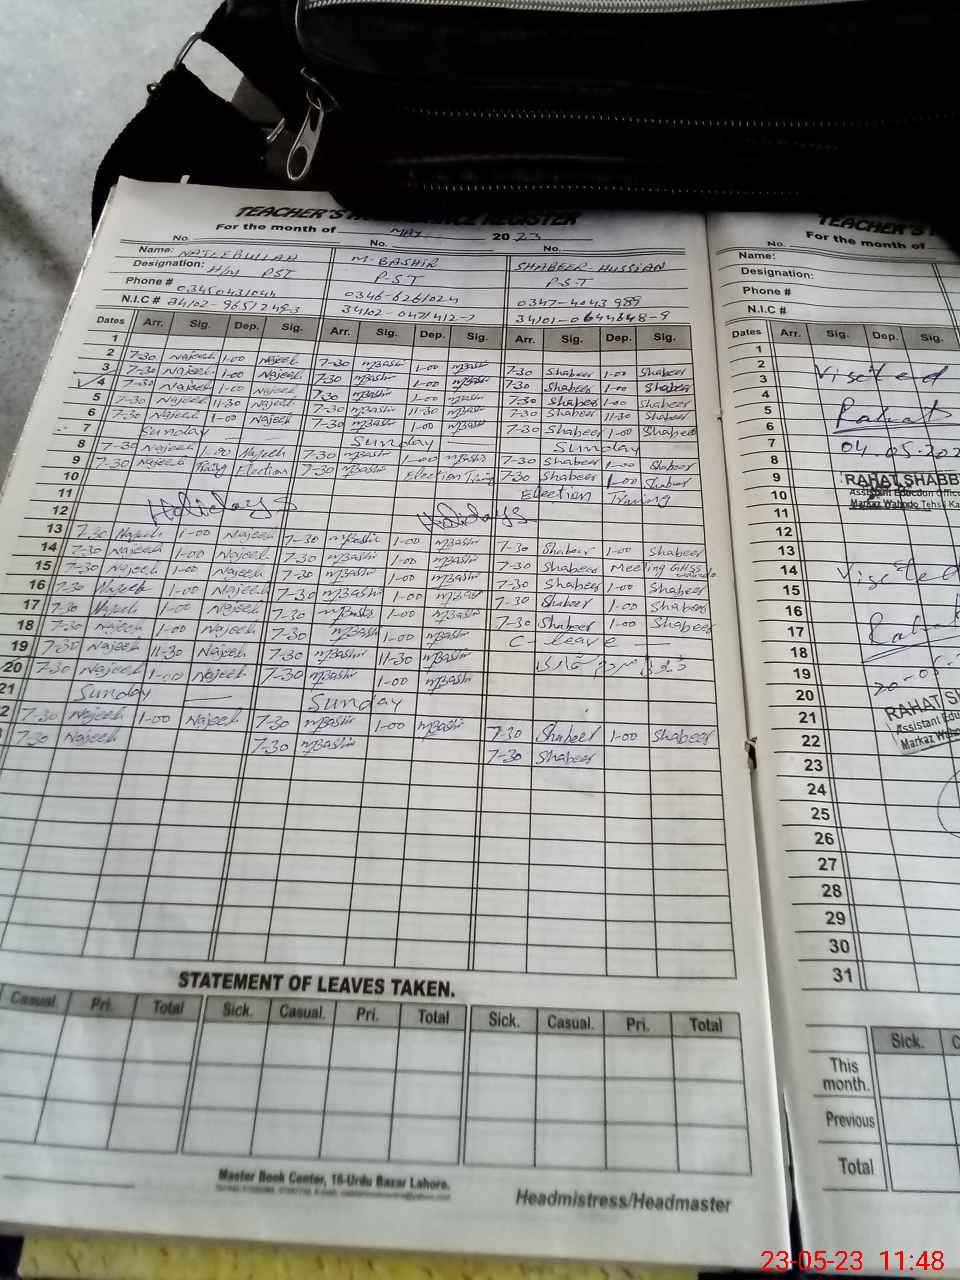 TEACHER'S REGISTER
For the month of MAY 2023
No. No. No.
Name: NAJEEBULLAH M-BASHIR SHABEER HUSSIAN
Designation: H/M PST P-S-T P-S-T
Phone # 0346-6261024 0347-4043989
N.I.C # 34102-9651249-3 34102-0471412-7 34101-0644648-9
Dates Arr. Sig. Dep. Sig. Arr. Sig. Dep. Sig. Arr. Sig. Dep. Sig.
1
2 7-30 Najeeb 1-00 Najeeb 7-30 MBashir 1-00 MBashir 7-30 Shabeer 1-00 Shabeer
3 7-30 Najeeb 1-00 Najeeb 7-30 MBashir 1-00 MBashir 7-30 Shabeer 1-00 Shabeer
4 7-30 Najeeb 1-00 Najeeb 7-30 MBashir 1-00 MBashir 7-30 Shabeer 1-00 Shabeer
5 7-30 Najeeb 11-30 Najeeb 7-30 MBashir 11-30 MBashir 7-30 Shabeer 11-30 Shabeer
6 7-30 Najeeb 1-00 Najeeb 7-30 MBashir 1-00 MBashir 7-30 Shabeer 1-00 Shabeer
7 Sunday Sunday Sunday
8 7-30 Najeeb 1-00 Najeeb 7-30 MBashir 1-00 MBashir 7-30 Shabeer 1-00 Shabeer
9 7-30 Najeeb Election 7-30 MBashir Election 7-30 Shabeer 1-00 Shabeer
10 Election Training
11 Holidays Holidays
12
13 7-30 Najeeb 1-00 Najeeb 7-30 MBashir 1-00 MBashir 7-30 Shabeer 1-00 Shabeer
14 7-30 Najeeb 1-00 Najeeb 7-30 MBashir 1-00 MBashir 7-30 Shabeer Meeting GHSS
15 7-30 Najeeb 1-00 Najeeb 7-30 MBashir 1-00 MBashir 7-30 Shabeer 1-00 Shabeer
16 7-30 Najeeb 1-00 Najeeb 7-30 MBashir 1-00 MBashir 7-30 Shabeer 1-00 Shabeer
17 7-30 Najeeb 1-00 Najeeb 7-30 MBashir 1-00 MBashir 7-30 Shabeer 1-00 Shabeer
18 7-30 Najeeb 1-00 Najeeb 7-30 MBashir 1-00 MBashir C-leave
19 7-30 Najeeb 11-30 Najeeb 7-30 MBashir 11-30 MBashir
20 7-30 Najeeb 1-00 Najeeb 7-30 MBashir 1-00 MBashir
21 Sunday Sunday
2 7-30 Najeeb 1-00 Najeeb 7-30 MBashir 1-00 MBashir 7-30 Shabeer 1-00 Shabeer
7-30 Najeeb 7-30 MBashir 7-30 Shabeer
STATEMENT OF LEAVES TAKEN.
Casual. Pri. Total Sick. Casual. Pri. Total Sick. Casual. Pri. Total
Master Book Center, 16-Urdu Bazar Lahore.
Headmistress/Headmaster
TEACHER'S
For the month of
No.
Name:
Designation:
Phone #
N.I.C #
Dates Arr. Sig. Dep. Sig.
1
2
3 Visited
4
5
6
7 04.05.202
8
9 RAHAT SHABB
10 Assistant Educaion Office
11 Markaz Wahndo Tehsil Ka
12
13
14 Visited
15
16
17
18
19
20 20-05
21 RAHAT SH
22 Assistant Edu
Markaz Wah
23
24
25
26
27
28
29
30
31
Sick. C
This month.
Previous
Total
23-05-23 11:48